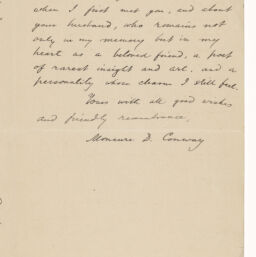 when I first met you, and about
your husband, who remains not
only in my memory but in my
heart as a beloved friend, a poet
of rarest insight and art, and a
personality whose charm I still feel.
Yours with all good wishes
and friendly remembrance,
Moncure D. Conway